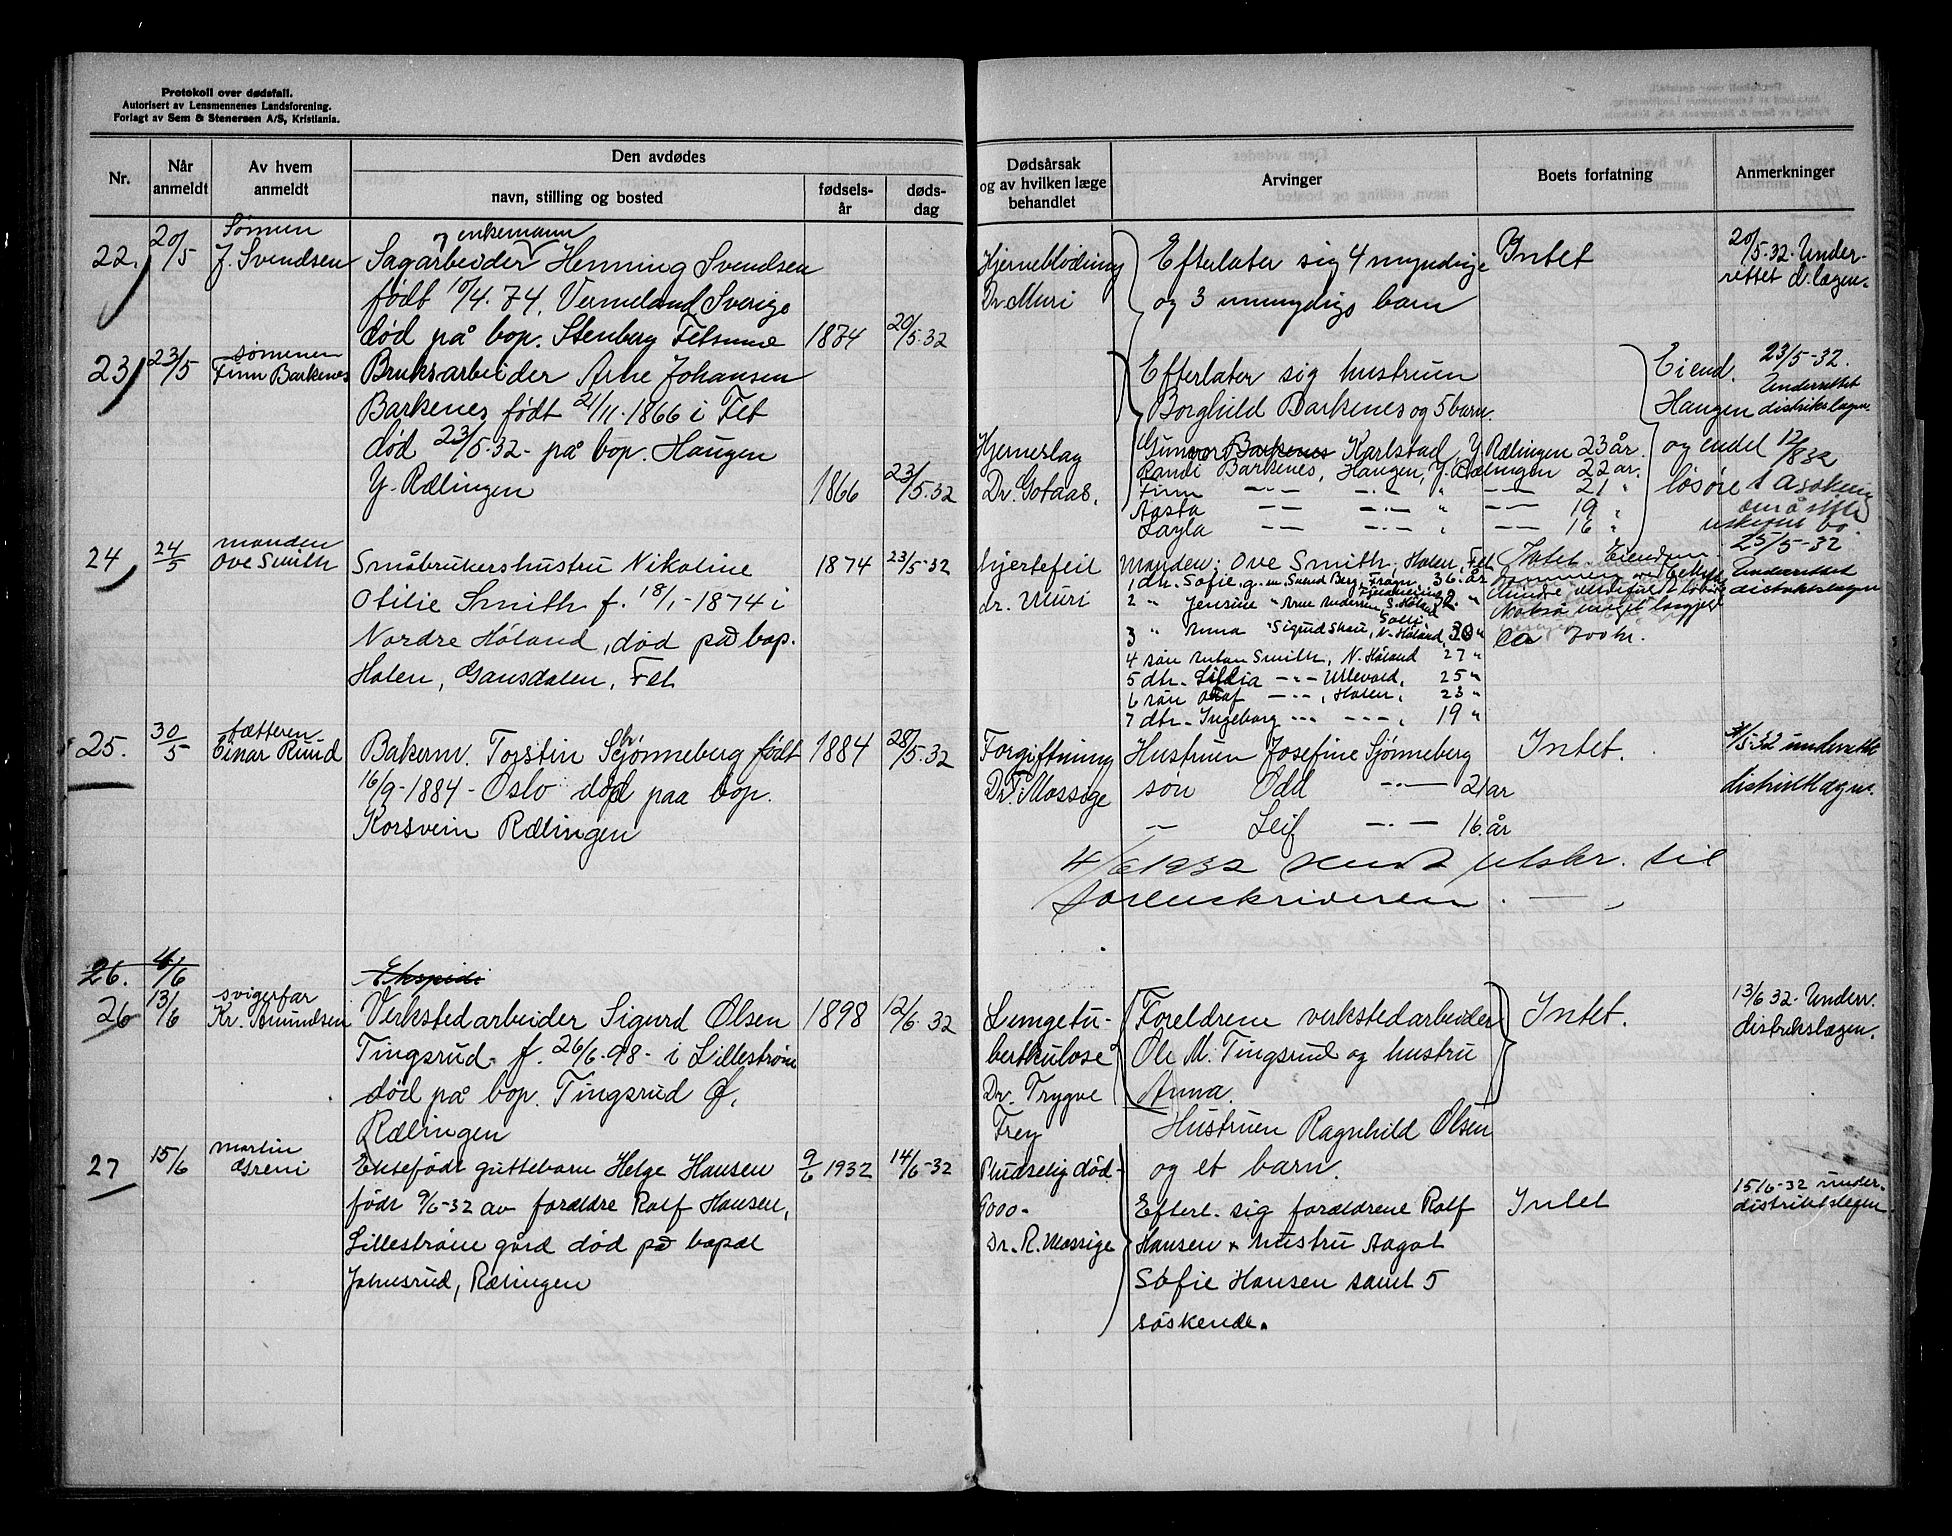 Protokoll over dødsfall.
Autorisert av Lensmennenes Landsforening.
Forlagt av Sem & Stenersen A/S, Kristiania.
Nr.
Når anmeldt
Av hvem anmeldt
Den avdødes
navn, stilling og bosted
fødsels-år
døds-dag
Dødsårsak og av hvilken læge behandlet
Arvinger
Boets forfatning
Anmerkninger
22.
20/5
Sønnen
J. Svendsen
og enkemann
Sagarbeider Henning Svendsen
født 10/4.74. Vermeland Sverige
død på bop. Stenberg Fetsund
1874
20/5.32
Hjerneblødning
Dr. Muri
Efterlater sig 4 myndige
og 3 umyndige barn
Intet
20/5.32. Under-
rettet d.lægen.
23
23/5
sønnen
Finn Barkenes
Bruksarbeider Arne Johansen
Barkenes født 21/11-1866 i Fet
død 23/5.32- på bop. Haugen
Y. Rælingen
1866
23/5.32
Hjerneslag
Dr. Gotaas.
Efterlater sig hustruen
Borghild Barkenes og 5 barn.
Gunvor Barkenes Karlstad, Y. Rælingen 23 år.
Randi Barkenes, Haugen, Y. Rælingen 22 år.
Finn -"- -"- " -"- 21 "
Aasta -- -"- " -- 19 "
Layla -- -"- " -- 16 "
Eiend.
Haugen
og endel
løsøre
23/5-32.
Underrettet
distriktslægen
12/8 32
uskiftet bo
24
24/5
manden
Ove Smith
Småbrukershustru Nikoline
Otilie Smith f. 18/1-1874 i
Nordre Høland, død på bop.
Holen, Gansdalen, Fet
1874
23/5-32
hjertefeil
dr. Muri
Manden: Ove Smith, Holen, Fet
1 dtr. Sofie g. m. Svend Berg, Frogn, 36 år
2 " Jensine " Arne Andersen, S. Høland
3 " Anna " Sigrud Skau, N. Høland, 30 "
4 søn Anton Smith, N. Høland 27 "
5 dtr. Lydia -"- Ullevold, 25 "
6 søn Olaf -"-, Holen, 23 "
7 dtr. Ingeborg -"- -"-, 19 "
Intet. Eiendom
ca 700 kr.
25/5-32
Underrettet
distriktslægen
25.
30/5
fætteren
Einar Ruud
Bakerm. Torstin Sjønneberg født
16/9-1884- Oslo død paa bop.
Korsvein Rælingen
1884
28/5.32
Forgiftning
Dr. T. Mossige
Hustruen Josefine Sjønneberg
søn Odd -"- 21 år
- Leif -"- 16 år
Intet.
31/5-32 underrett
distriktslægen.
4/6 1932 sendt utskr. til
sorenskriveren.
26.
4/6
Ekspedi
26
13/6
svigerfar
Kr. Amundsen
Verkstedarbeider Sigurd Olsen
Tingsrud- f. 26/6-98- i Lillestrøm
død på bop. Tingsrud Ø.
Rælingen
1898
12/6.32
Lungetu-
berkulose
Dr. Trygve
Frey
Foreldrene verkstedarbeider
Ole M. Tingsrud og hustru
Anna.
Hustruen Ragnhild Olsen
og et barn.
Intet.
13/6 32. Underr.
distrikslægen.
27
15/6
Martin
Asreni
Ektefødt guttebarn Helge Hansen
født 9/6-32 av forældre Rolf Hansen,
Lillestrøm gård død på bopæl
Johnsrud, Rælingen
9/6 1932
14/6-32
Pludselig død-
9000-
Dr. R. Mossige
Efterl. sig forældrene Rolf
Hansen & hustru Aagot
Sofie Hansen samt 5
søskende.
Intet
15/6-32 under.
distriktslegen